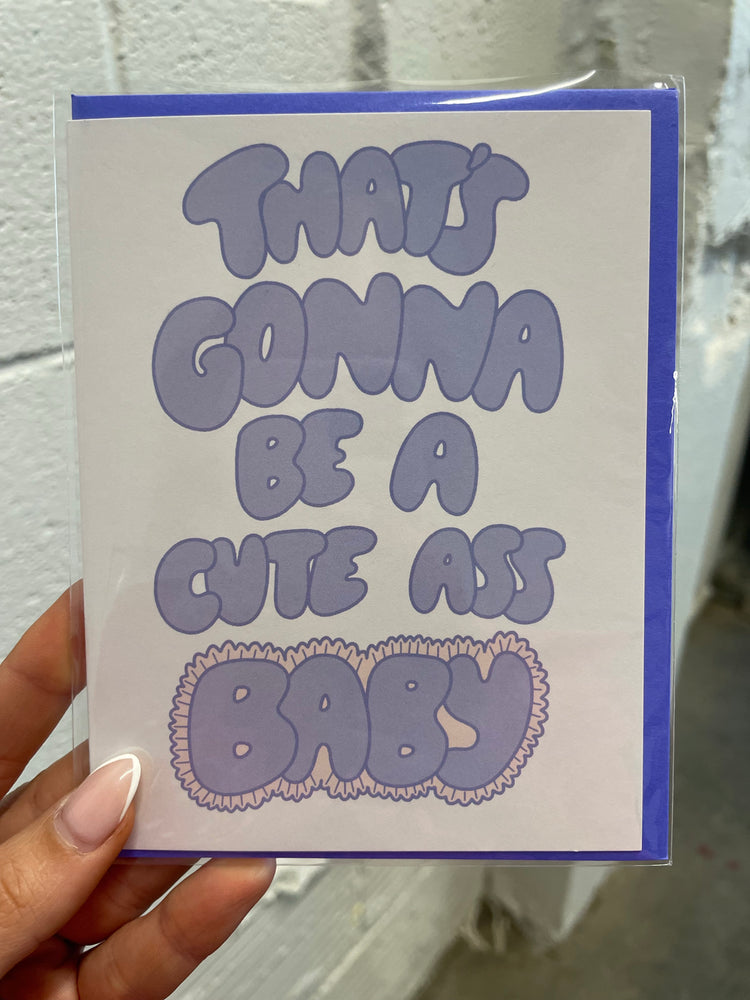 THAT'S
GONNA
BE A
CUTE ASS
BABY